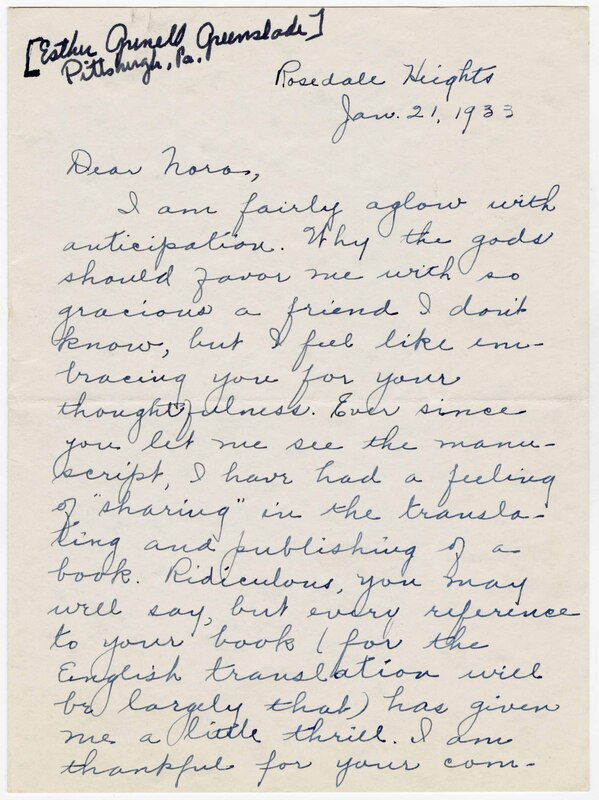 [Esther Grinell Greenslade]
Pittsburgh, Pa.
Rosedale Heights
Jan. 21, 1933
Dear Nora,
I am fairly aglow with
anticipation. Why the gods
should favor me with so
gracious a friend I don't
know, but I feel like em-
bracing you for your
thoughtfulness. Ever since
you let me see the manu-
script, I have had a feeling
of "sharing" in the transla-
ting and publishing of a
book. Ridiculous, you may
well say, but every reference
to your book (for the
English translation will
be largely that) has given
me a little thrill. I am
thankful for your com-